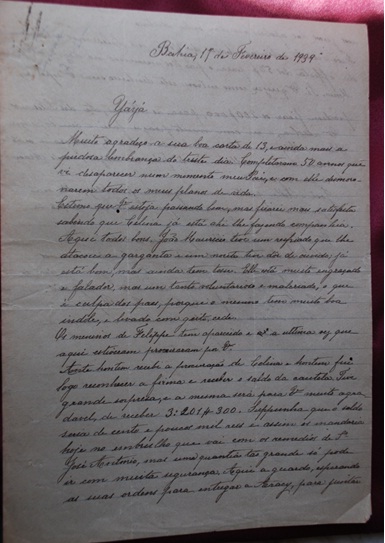 Bahia, 19 de Fevereiro de 1939.
Yáyá
Muito agradeço a sua boa carta de 13, e ainda mais a
piedosa lembrança do triste dia. Completaram 50 annos que
vi desaparecer num momento meu Pai, e com elle desmoronarem
todos os meus planos de vida.
Estimo que V. esteja passando bem, mas ficarei mais satisfeita
sabendo que Celina já está ahi lhe fazendo companhia.
Aqui todos bons. João Mauricio teve um resfriado que lhe
atacou a garganta e um noite teve dor de ouvido; já
está bom, mas ainda tem tosse. Elle está muito engraçado
e falador, mas um tanto voluntarioso e malcriado, o que
é culpa dos paes, porque o menino tem muito boa
indole, e levado com geito, cede.
Os meninos de Felippe tem aparecido e a ultima vez que
aqui estiveram perguntaram por V.
Ante hontem recebi a procuração de Celina e hontem fiz
logo reconhecer a firma e receber o saldo da cautela. Tive
grande surpresa, e a mesma será para V. muito agradavel,
de receber 3:201$300. Suppunha que o saldo
seria de cento e poucos mil reis e assim os mandaria
hoje no embrulho que vai com os remedios de
José Antonio, mas uma quantia tão grande só poderá
ir com muita segurança. Aqui a guardo, esperando
as suas ordens para entregar a Aracy, para juntar